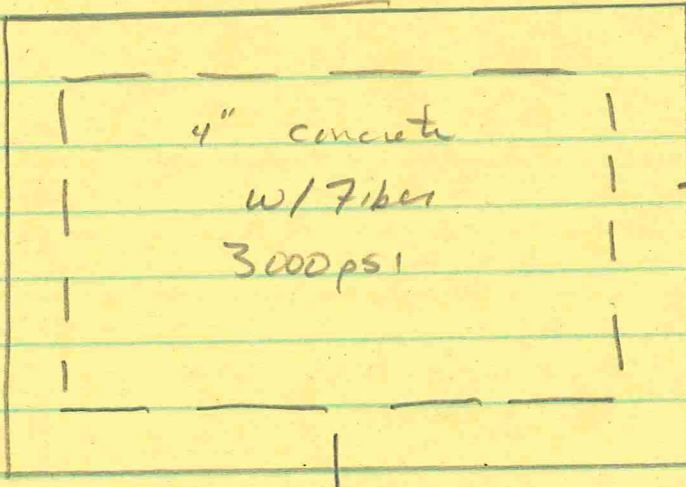 4" concrete
w/ Fiber
3000psi